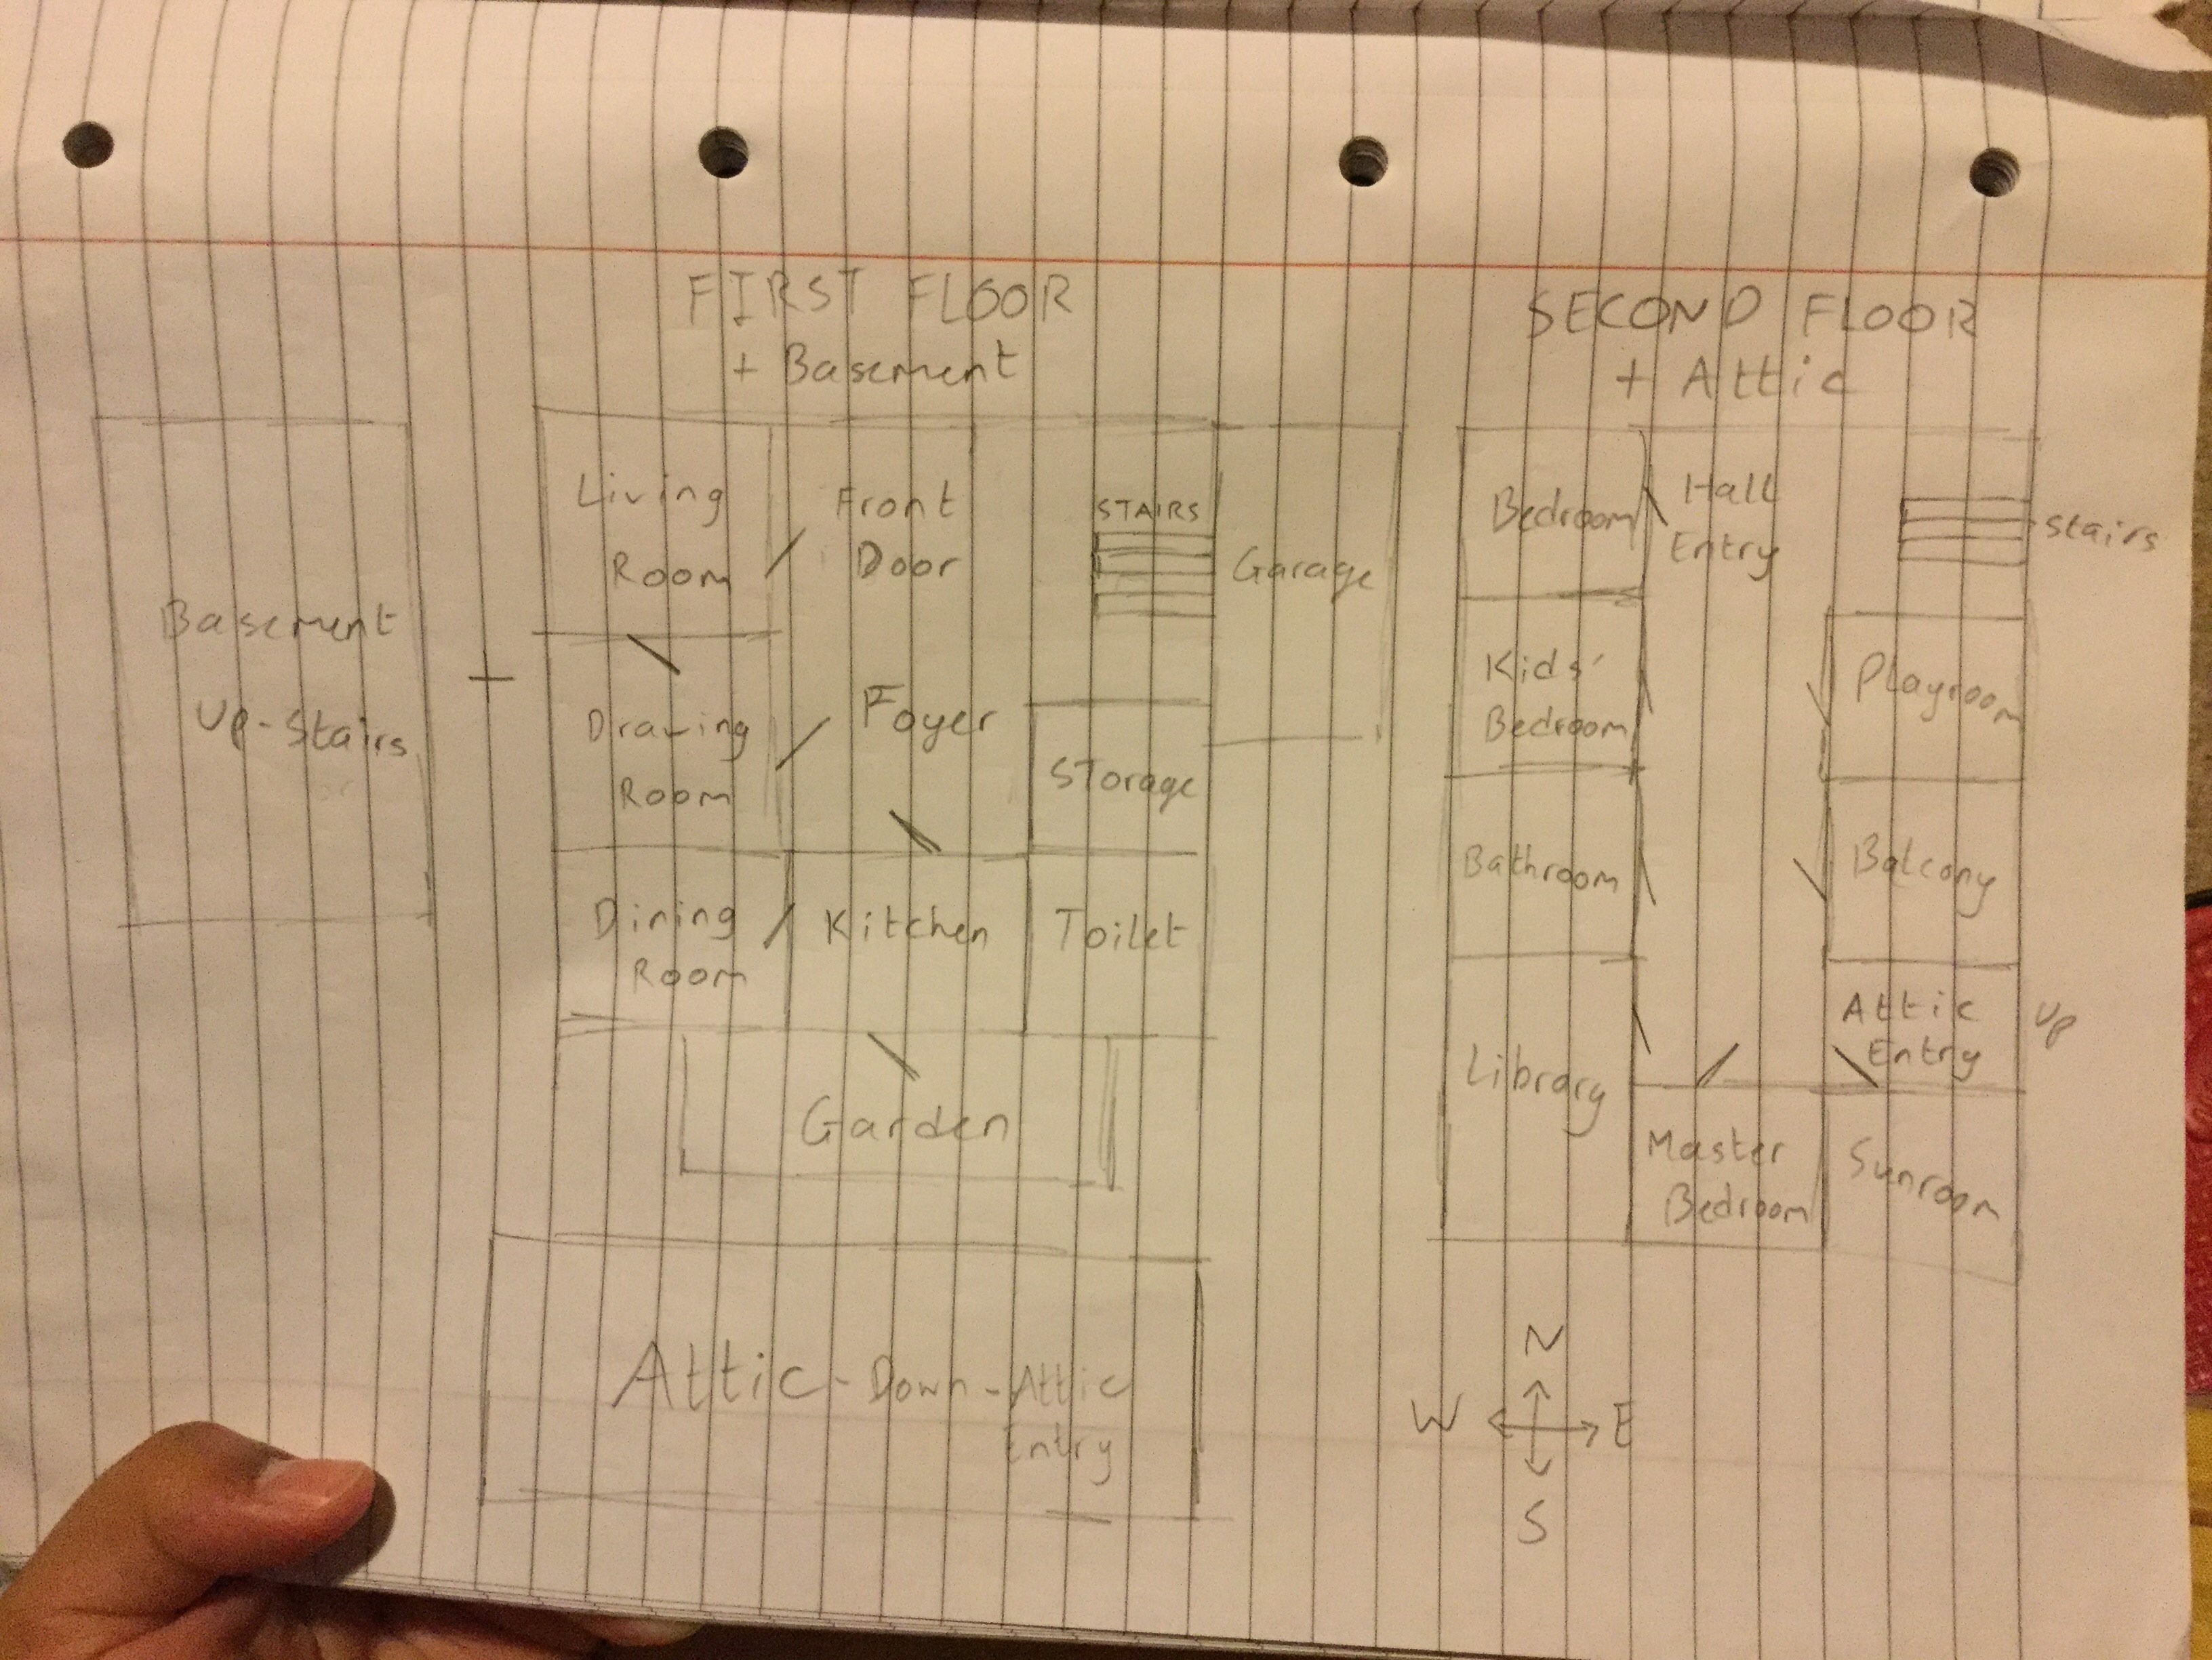 FIRST FLOOR
+ Basement
SECOND FLOOR
+ Attic
Basement
Up-Stairs
+
Living
Room
Front
Door
STAIRS
Garage
Drawing
Room
Foyer
Storage
Dining
Room
Kitchen
Toilet
Garden
Attic-Down-Attic
Entry
Bedroom
Hall
Entry
Stairs
Kids'
Bedroom
Playroom
Bathroom
Balcony
Library
Attic
Entry
Up
Master
Bedroom
Sunroom
N
W E
S